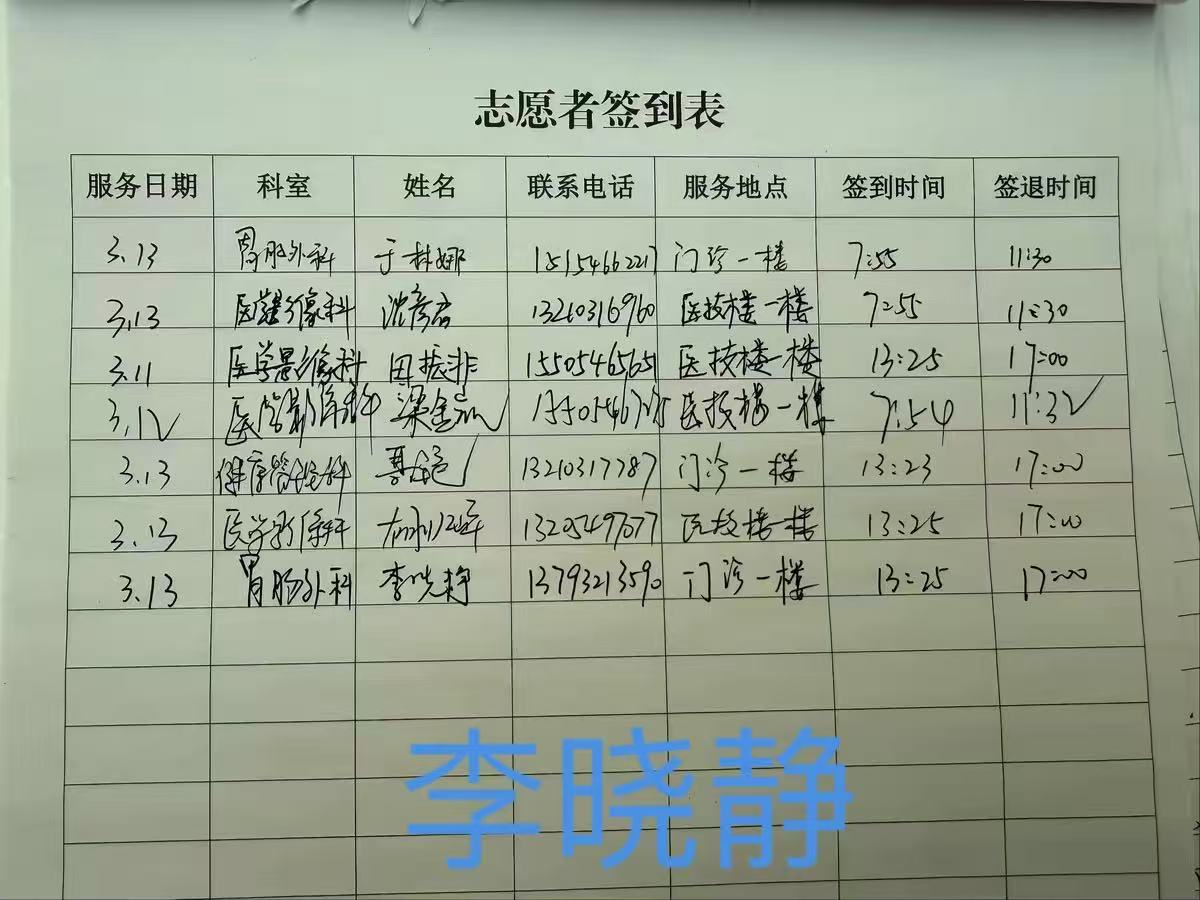 志愿者签到表
服务日期 科室 姓名 联系电话 服务地点 签到时间 签退时间
3.13 胃肠外科 于林娜 15154662217 门诊一楼 7:55 11:30
3.13 医学影像科 沈彦君 13210316960 医技楼一楼 7:55 11:30
3.11 医学影像科 田振非 1550546565 医技楼一楼 13:25 17:00
3.12 医学影像科 梁 医技楼一楼 7:54 11:32
3.13 健康管理科 13210317787 门诊一楼 13:23 17:00
3.13 医学影像科 13205497077 医技楼一楼 13:25 17:00
3.13 胃肠外科 李晓静 13793213590 门诊一楼 13:25 17:00
李晓静